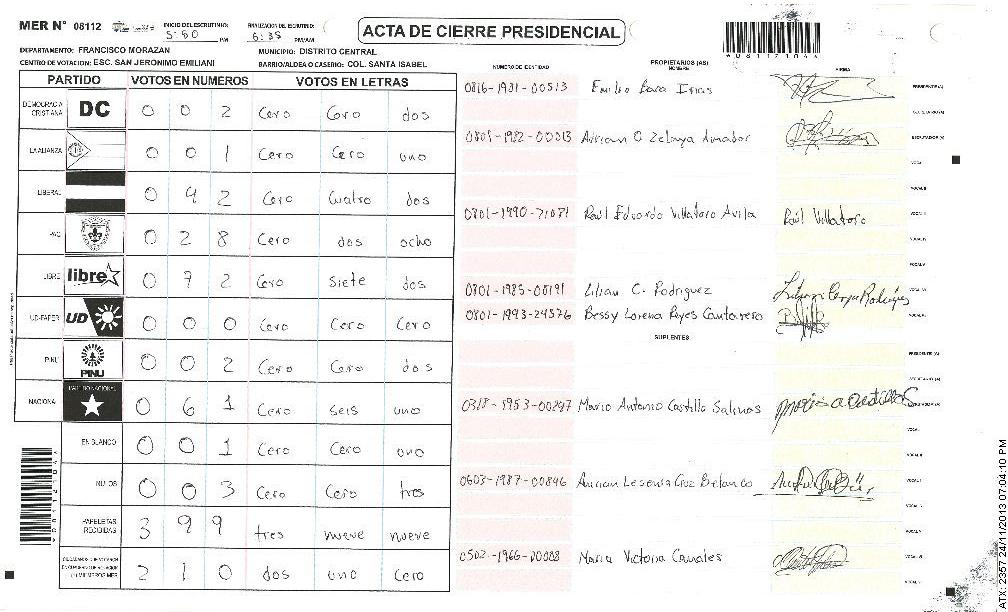 MER N° 08112
INICIO DEL ESCRUTINIO: 5:50 PM
FINALIZACION DEL ESCRUTINIO: 6:38 PM/AM
ACTA DE CIERRE PRESIDENCIAL
DEPARTAMENTO: FRANCISCO MORAZAN
MUNICIPIO: DISTRITO CENTRAL
CENTRO DE VOTACION: ESC. SAN JERONIMO EMILIANI
BARRIO/ALDEA O CASERIO: COL. SANTA ISABEL
PARTIDO VOTOS EN NUMEROS VOTOS EN LETRAS
DEMOCRACIA CRISTIANA DC 0 0 2 Cero Cero dos
LA ALIANZA 0 0 1 Cero Cero uno
LIBERAL 0 4 2 Cero Cuatro dos
PAC 0 2 8 Cero dos ocho
LIBRE libre 0 7 2 Cero siete dos
UD-FAPER UD 0 0 0 Cero Cero Cero
PINU PINU 0 0 2 Cero Cero dos
NACIONAL PARTIDO NACIONAL 0 6 1 Cero seis uno
EN BLANCO 0 0 1 Cero Cero uno
NULOS 0 0 3 Cero Cero tres
PAPELETAS RECIBIDAS 3 9 9 tres nueve nueve
2 1 0 dos uno Cero
NUMERO DE IDENTIDAD
PROPIETARIOS (AS)
NOMBRE
FIRMA
0816-1981-00513 Emilio Bara Irias PRESIDENTE(A)
SECRETARIO (A)
0801-1982-00013 Miriam O Zelaya Amador ESCRUTADOR (A)
VOCAL I
VOCAL II
0801-1990-21071 Raúl Eduardo Villatoro Avila Raúl Villatoro VOCAL III
VOCAL IV
VOCAL V
0801-1985-08191 Lilian C. Rodriguez
0801-1993-24576 Bessy Lorena Reyes Cantarero
SUPLENTES
PRESIDENTE (A)
SECRETARIO (A)
0318-1953-00247 Mario Antonio Castillo Salinas
VOCAL I
VOCAL II
0603-1987-00846
0502-1966-00088 Maria Victoria Canales
ATX: 2357 24/11/2013 07:04:10 PM